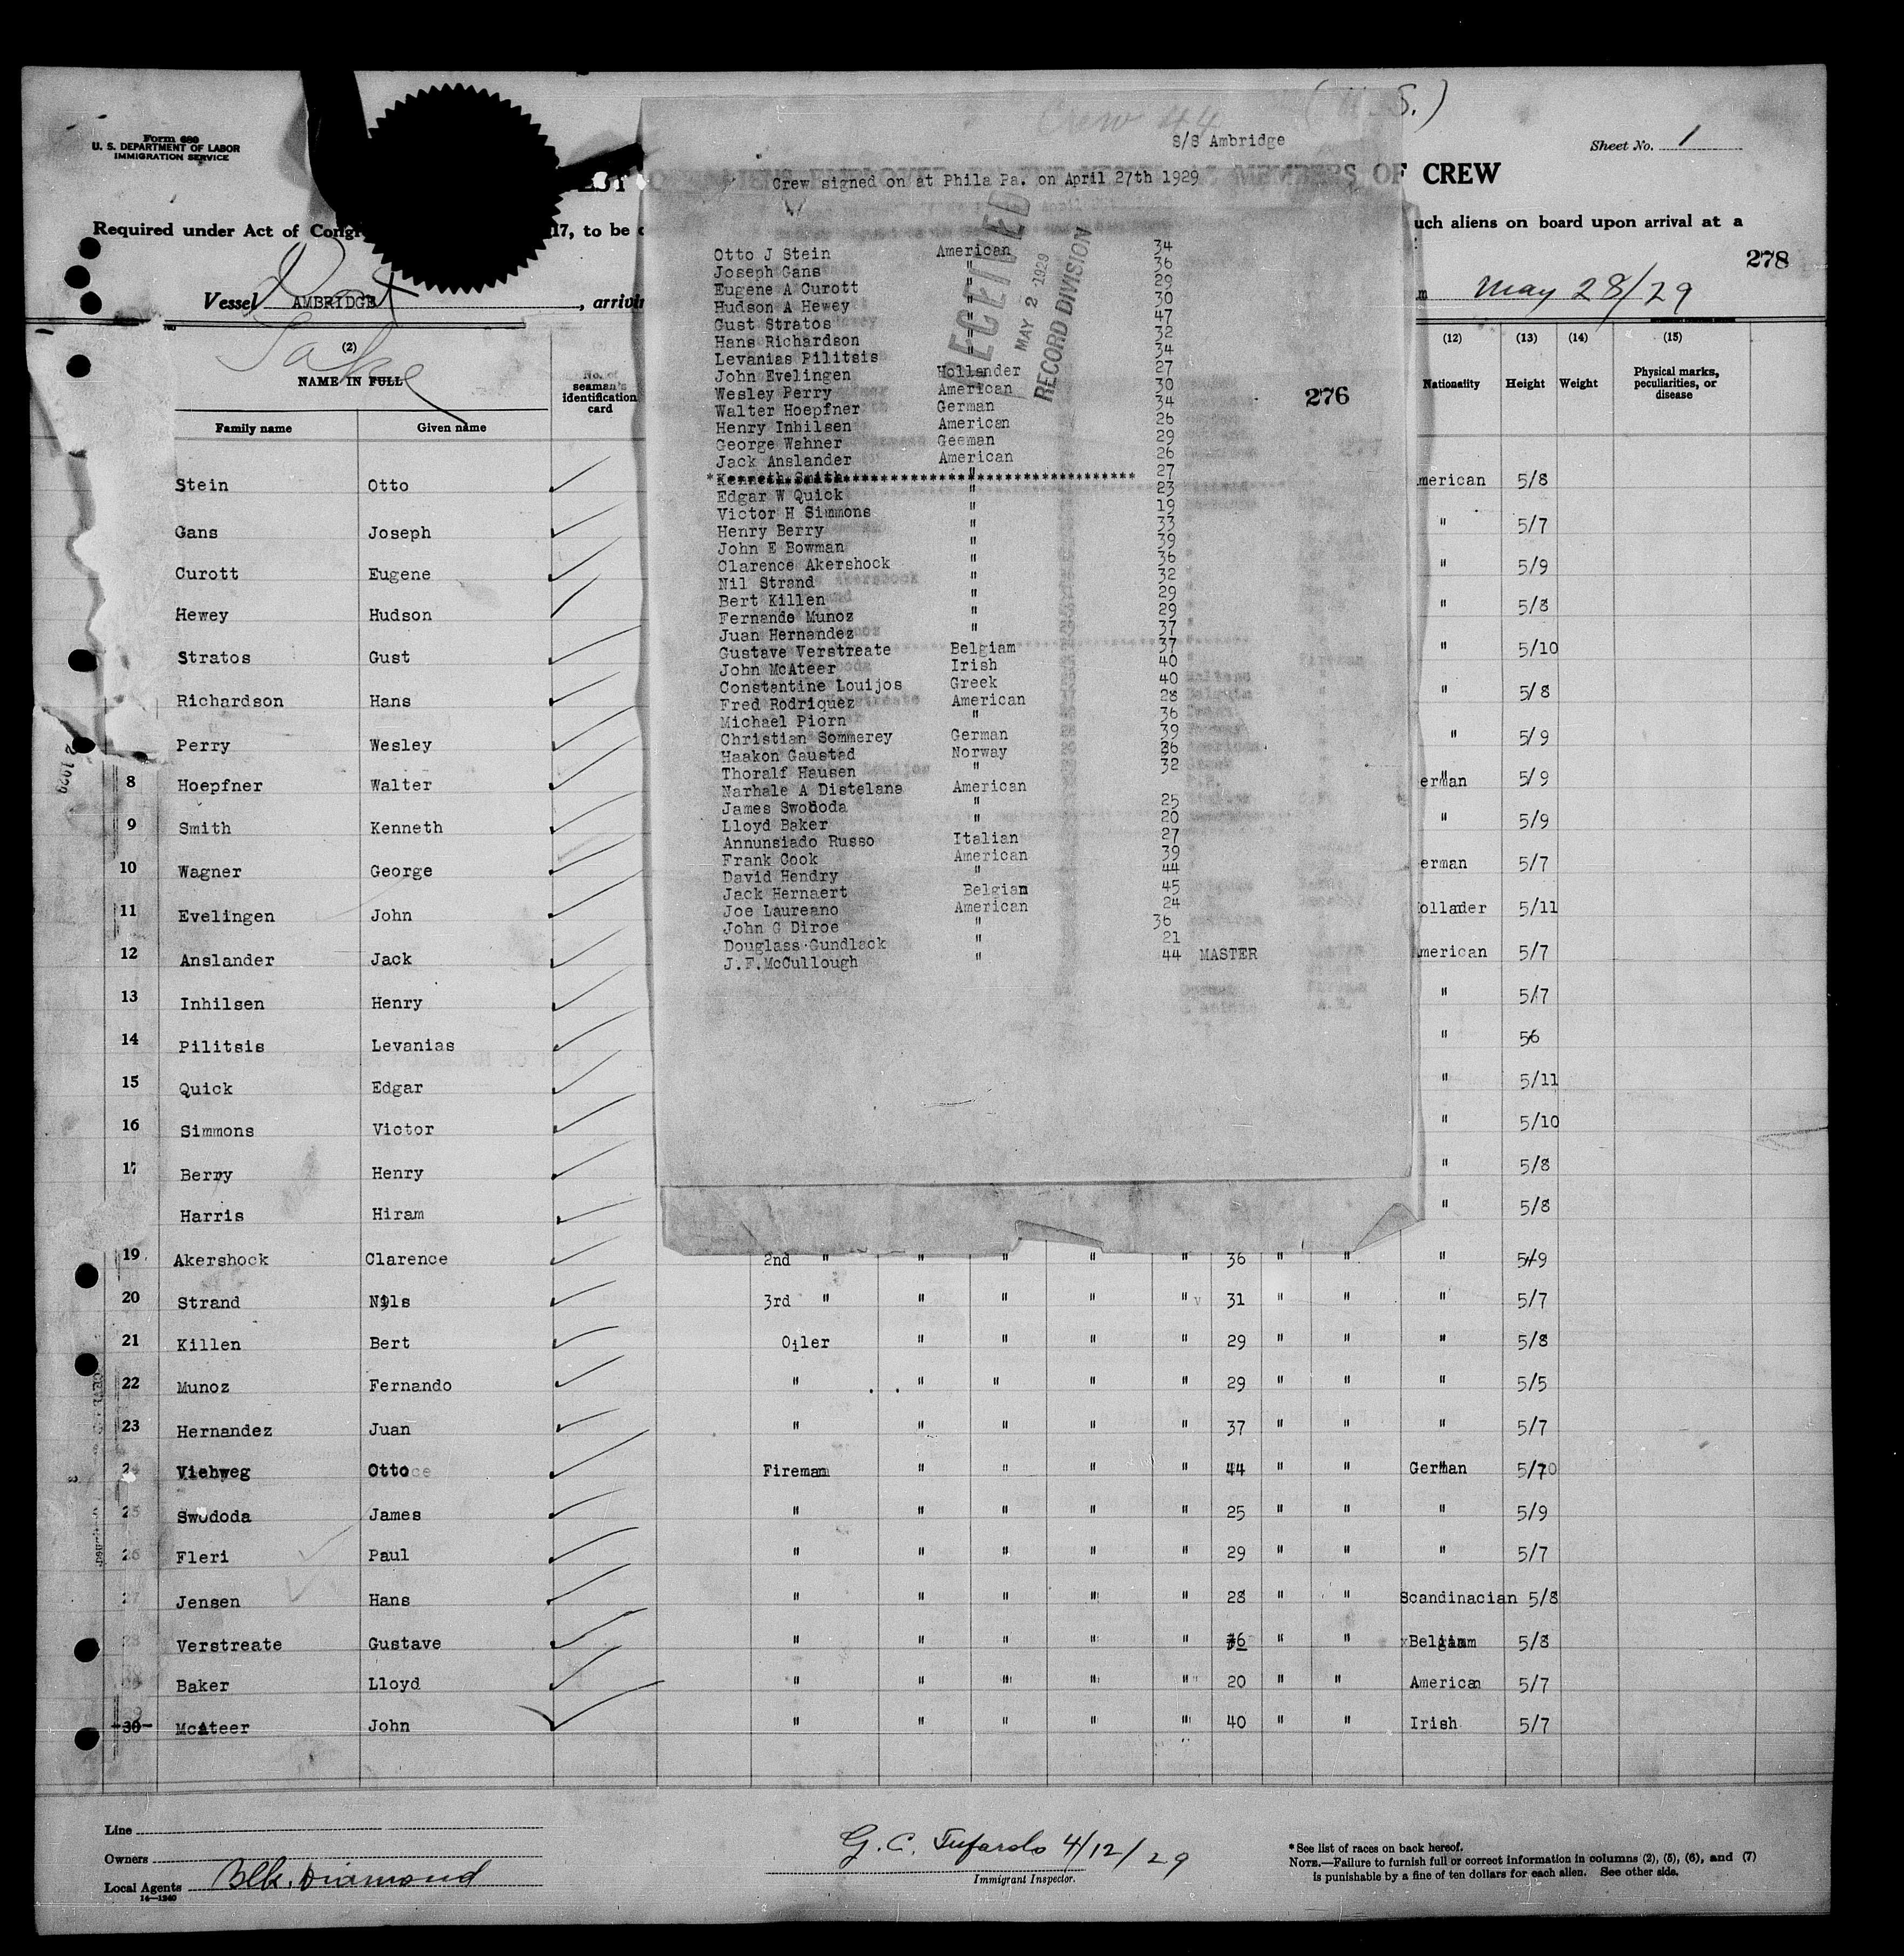 S/S Ambridge
Form 680
U. S. DEPARTMENT OF LABOR
IMMIGRATION SERVICE
Sheet No. 1
MEMBERS OF CREW
Crew signed on at Phila Pa. on April 27th 1929
Required under Act of Congr 17, to be uch aliens on board upon arrival at a
278
Vessel AMBRIDGE , arrivi May 28/29
RECEIVED
MAY 2 1929
RECORD DIVISION
276
Otto J Stein American 34
Joseph Gans " 36
Eugene A Curott " 29
Hudson A Hewey " 30
Gust Stratos " 47
Hans Richardson " 32
Levanias Pilitsis " 34
John Evelingen Hollander 27
Wesley Perry American 30
Walter Hoepfner German 34
Henry Inhilsen American 26
George Wahner Geeman 29
Jack Anslander American 26
Kenneth Smith " 27
Edgar W Quick " 23
Victor H Simmons " 19
Henry Berry " 33
John E Bowman " 39
Clarence Akershock " 36
Nil Strand " 32
Bert Killen " 29
Fernando Munoz " 29
Juan Hernandez " 37
Gustave Verstreate Belgiam 37
John McAteer Irish 40
Constantine Louijos Greek 40
Fred Rodriquez American 28
Michael Piorn " 36
Christian Sommerey German 39
Haakon Gaustad Norway 26
Thoralf Hausen " 32
Narhale A Distelana American
James Swododa " 25
Lloyd Baker " 20
Annunsiado Russo Italian 27
Frank Cook American 39
David Hendry " 44
Jack Hernaert Belgian 45
Joe Laureano American 24
John G Diroe " 36
Douglass Gundlack " 21
J.F.McCullough " 44 MASTER
(2) (12) (13) (14) (15)
NAME IN FULL
No. of seaman's identification card
Nationality Height Weight Physical marks, peculiarities, or disease
Family name Given name
Stein Otto merican 5/8
Gans Joseph " 5/7
Curott Eugene " 5/9
Hewey Hudson " 5/8
Stratos Gust " 5/10
Richardson Hans " 5/8
Perry Wesley " 5/9
8 Hoepfner Walter erman 5/9
9 Smith Kenneth " 5/9
10 Wagner George erman 5/7
11 Evelingen John ollander 5/11
12 Anslander Jack merican 5/7
13 Inhilsen Henry " 5/7
14 Pilitsis Levanias " 56
15 Quick Edgar " 5/11
16 Simmons Victor " 5/10
17 Berry Henry " 5/8
Harris Hiram " 5/8
19 Akershock Clarence 2nd " " " " " 36 " " " 5/9
20 Strand Nils 3rd " " " " " 31 " " " 5/7
21 Killen Bert Oiler " " " " 29 " " " 5/8
22 Munoz Fernando " " " " " 29 " " " 5/5
23 Hernandez Juan " " " " " 37 " " " 5/7
24 Viehweg Otto Fireman " " " " 44 " " German 5/7
25 Swododa James " " " " " 25 " " " 5/9
26 Fleri Paul " " " " " 29 " " " 5/7
27 Jensen Hans " " " " " 28 " " Scandinacian 5/8
28 Verstreate Gustave " " " " " 36 " " Belgiam 5/8
Baker Lloyd " " " " " 20 " " American 5/7
30 McAteer John " " " " " 40 " " Irish 5/7
Line
Owners
Local Agents Blk. Diamond
14—1240
G. C. Tufarolo 4/12/29
Immigrant Inspector.
* See list of races on back hereof.
NOTE.—Failure to furnish full or correct information in columns (2), (5), (6), and (7)
is punishable by a fine of ten dollars for each alien. See other side.